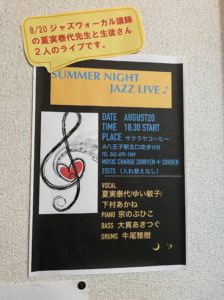 8/20 ジャズヴォーカル講師
の夏実泰代先生と生徒さん
２人のライブです。
SUMMER NIGHT
JAZZ LIVE♪
DATE AUGUST20
TIME 18:30 START
PLACE サクラヤコーヒー
JR八王子駅北口徒歩11分
TEL 042-699-1569
MUSIC CHARGE 2000YEN+2ORDER
2SETS (入れ替えなし)
VOCAL
夏実泰代/ゆい敏子/
下村あかね
PIANO 宗のぶひこ
BASS 大貫あきつぐ
DRUMS 牛尾雅樹